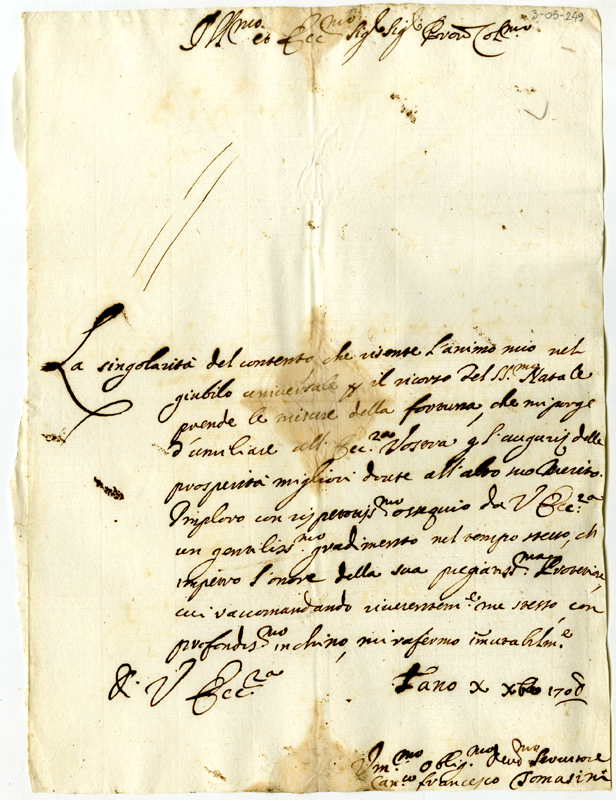 3-05-249
Ill.mo et Ecc.mo Sig.re Sig.re Pron Col.mo
La singolarità del contento che risente l'animo mio nel
giubilo universale p il ricorso del SS.mo Natale
prende le misure della fortuna, che mi porge
d'umiliare all' Ecc.za Vostra gl'augurij delle
prosperità migliori doute all'alto suo Merito.
Imploro con rispettosis.mo ossequio da V Ecc.za
un gentiliss.mo gradimento nel tempo stesso, ch
impetro l'onore della sua pregiatiss.ma Protetione,
cui raccomandando riverentem.e me stesso, con
profondis.mo inchino, mi rafermo imutabilm.e
D. V Ecc.za
Fano X Xbre 1708
Um.mo Oblig.mo Deuo.mo Servitore
Can.co Francesco Tomasini